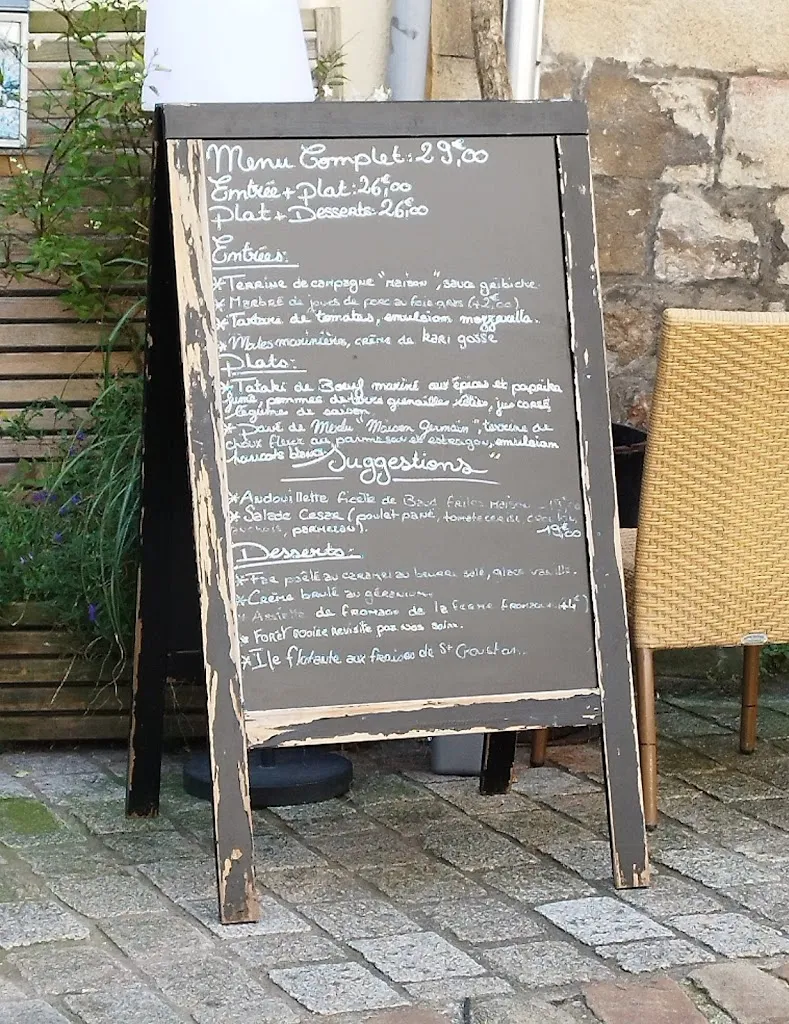 Menu Complet: 29,€00
Entrée + plat: 26,€00
Plat + Desserts: 26,€00
Entrées:
* Terrine de campagne "maison", sauce gribiche.
* Marbré de joues de porc au foie gras (+2,€00)
* Tartare de tomates, emulsion mozzarella.
* Moules marinières, crème de kari gosse
Plats:
* Tataki de Boeuf mariné aux épices et paprika
fumé, pommes de terre grenailles rôties, jus corsé,
légumes de saison.
* Pavé de Merlu "Maison Germain", terrine de
choux fleur au parmesan et estragon, emulsion
haricots blancs "
Suggestions
* Andouillette ficelle de Baud frites maison
* Salade Cesar (poulet pané, tomate cerise,
parmesan). 19,€00
Desserts:
* poêlé au caramel au beurre salé, glace vanille.
* Crème brulé au géranium.
* Assiette de fromage de la ferme
* Forêt noire revisite par nos soins.
* Île flotante aux fraises de St